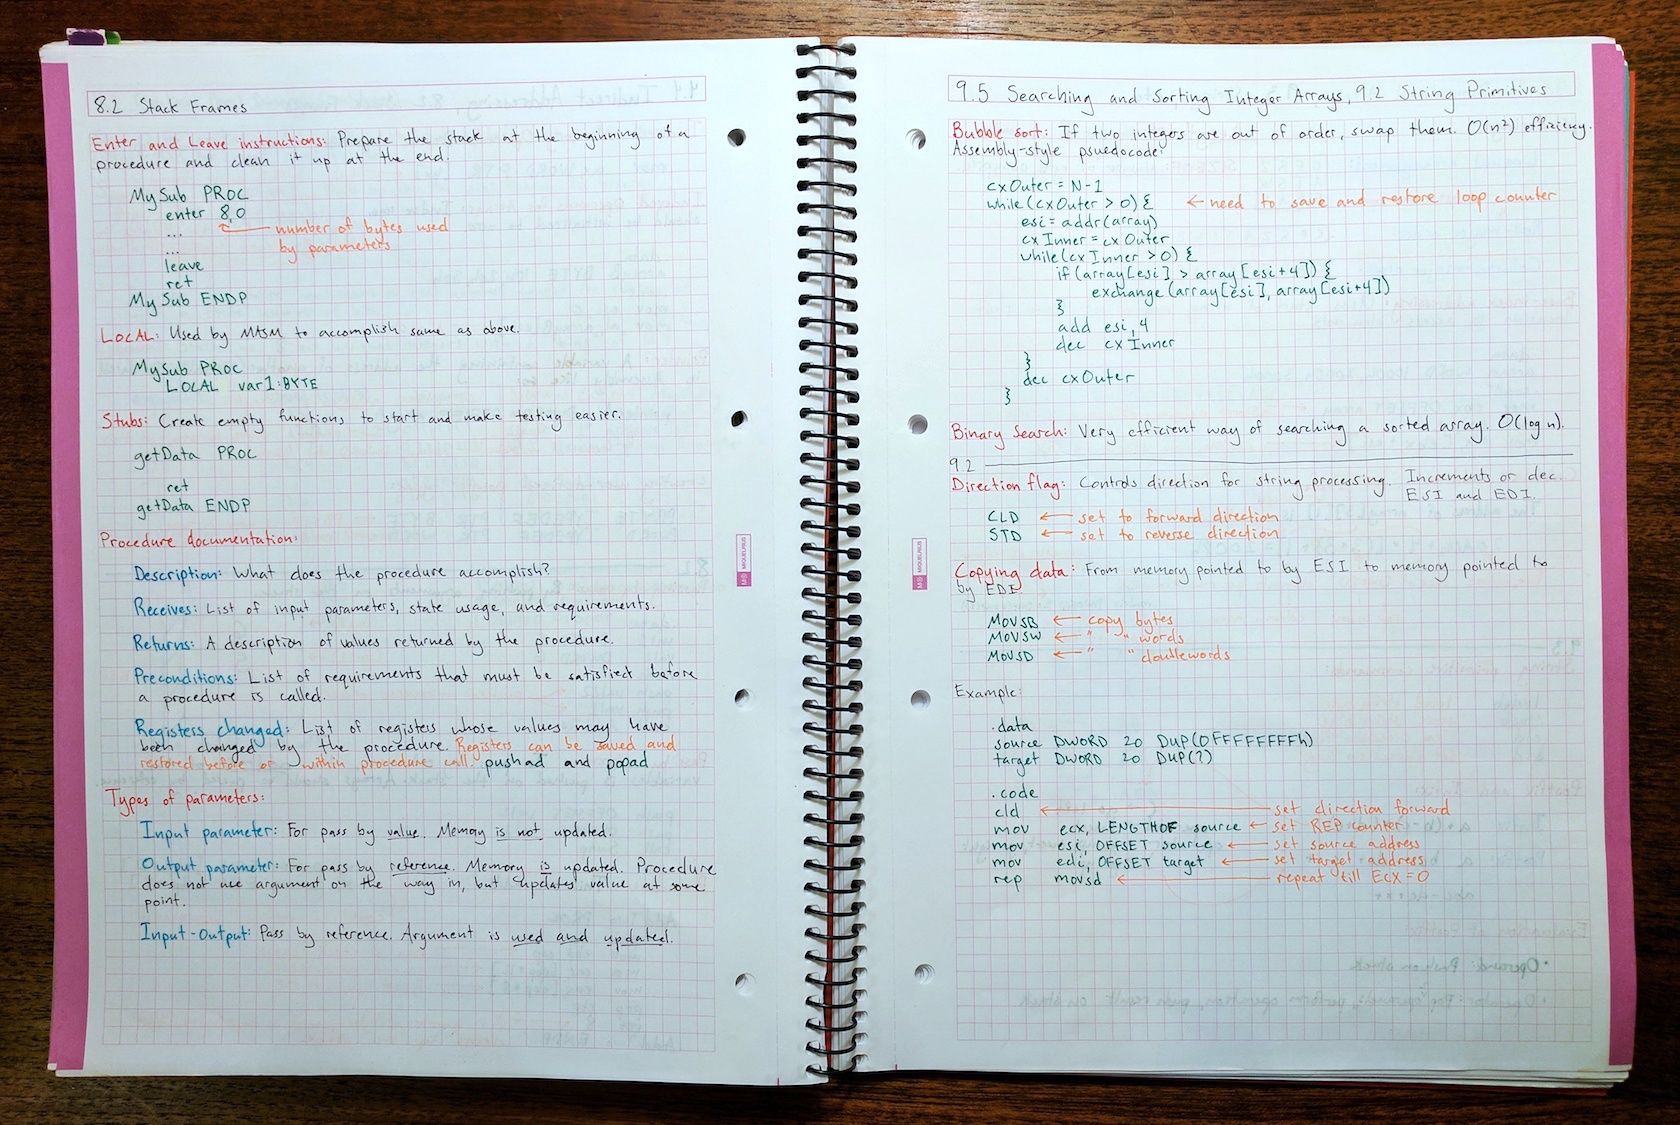 8.2 Stack Frames
Enter and Leave instructions: Prepare the stack at the beginning of a
procedure and clean it up at the end.
MySub PROC
enter 8,0
... ← number of bytes used
... by parameters
leave
ret
MySub ENDP
LOCAL: Used by MASM to accomplish same as above.
MySub PROC
LOCAL var1:BYTE
Stubs: Create empty functions to start and make testing easier.
getData PROC
ret
getData ENDP
Procedure documentation:
Description: What does the procedure accomplish?
Receives: List of input parameters, state usage, and requirements.
Returns: A description of values returned by the procedure.
Preconditions: List of requirements that must be satisfied before
a procedure is called.
Registers changed: List of registers whose values may have
been changed by the procedure. Registers can be saved and
restored before or within procedure call pushad and popad
Types of parameters:
Input parameter: For pass by value. Memory is not updated.
Output parameter: For pass by reference. Memory is updated. Procedure
does not use argument on the way in, but updates value at some
point.
Input-Output: Pass by reference. Argument is used and updated.
MIQUELRIUS
9.5 Searching and Sorting Integer Arrays, 9.2 String Primitives
Bubble sort: If two integers are out of order, swap them. O(n²) efficiency.
Assembly-style psuedocode:
cxOuter = N-1
while(cxOuter > 0) { ← need to save and restore loop counter
esi = addr(array)
cxInner = cxOuter
while(cxInner > 0) {
if (array[esi] > array[esi+4]) {
exchange (array[esi], array[esi+4])
}
add esi, 4
dec cxInner
}
dec cxOuter
}
Binary Search: Very efficient way of searching a sorted array. O(log n).
9.2
Direction flag: Controls direction for string processing. Increments or dec.
ESI and EDI.
CLD ← set to forward direction
STD ← set to reverse direction
Copying data: From memory pointed to by ESI to memory pointed to
by EDI
MOVSB ← copy bytes
MOVSW ← " " words
MOVSD ← " " doublewords
Example:
.data
source DWORD 20 DUP(0FFFFFFFFh)
target DWORD 20 DUP(?)
.code
cld ← set direction forward
mov ecx, LENGTHOF source ← set REP counter
mov esi, OFFSET source ← set source address
mov edi, OFFSET target ← set target address
rep movsd ← repeat till ECX = 0
MIQUELRIUS